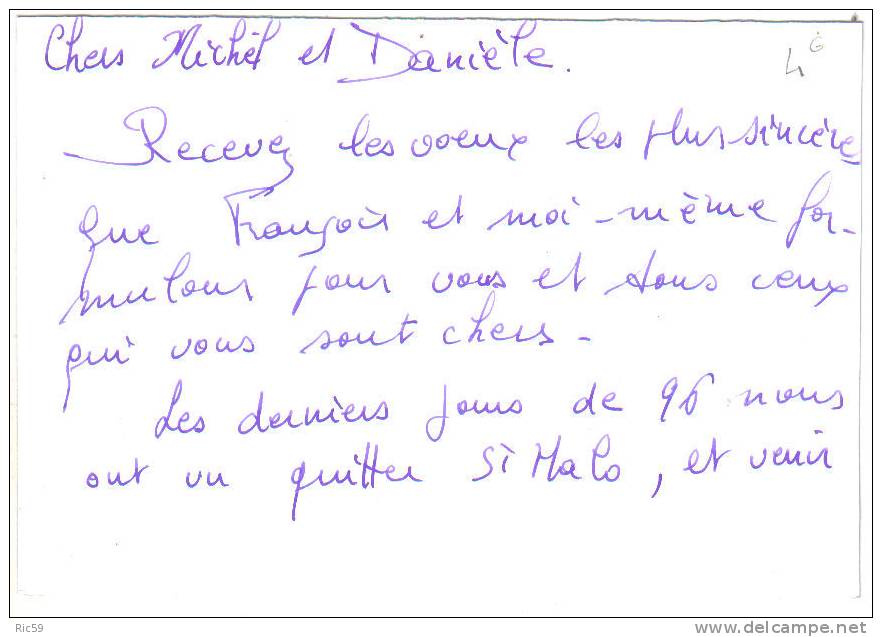 Chers Michel et Danièle.
4€
Recevez les voeux les plus sincère
que François et moi-même for-
mulons pour vous et tous ceux
qui vous sont chers -
Les derniers jours de 96 nous
ont vu quitter St Malo, et venir
Ric59
www.delcampe.net